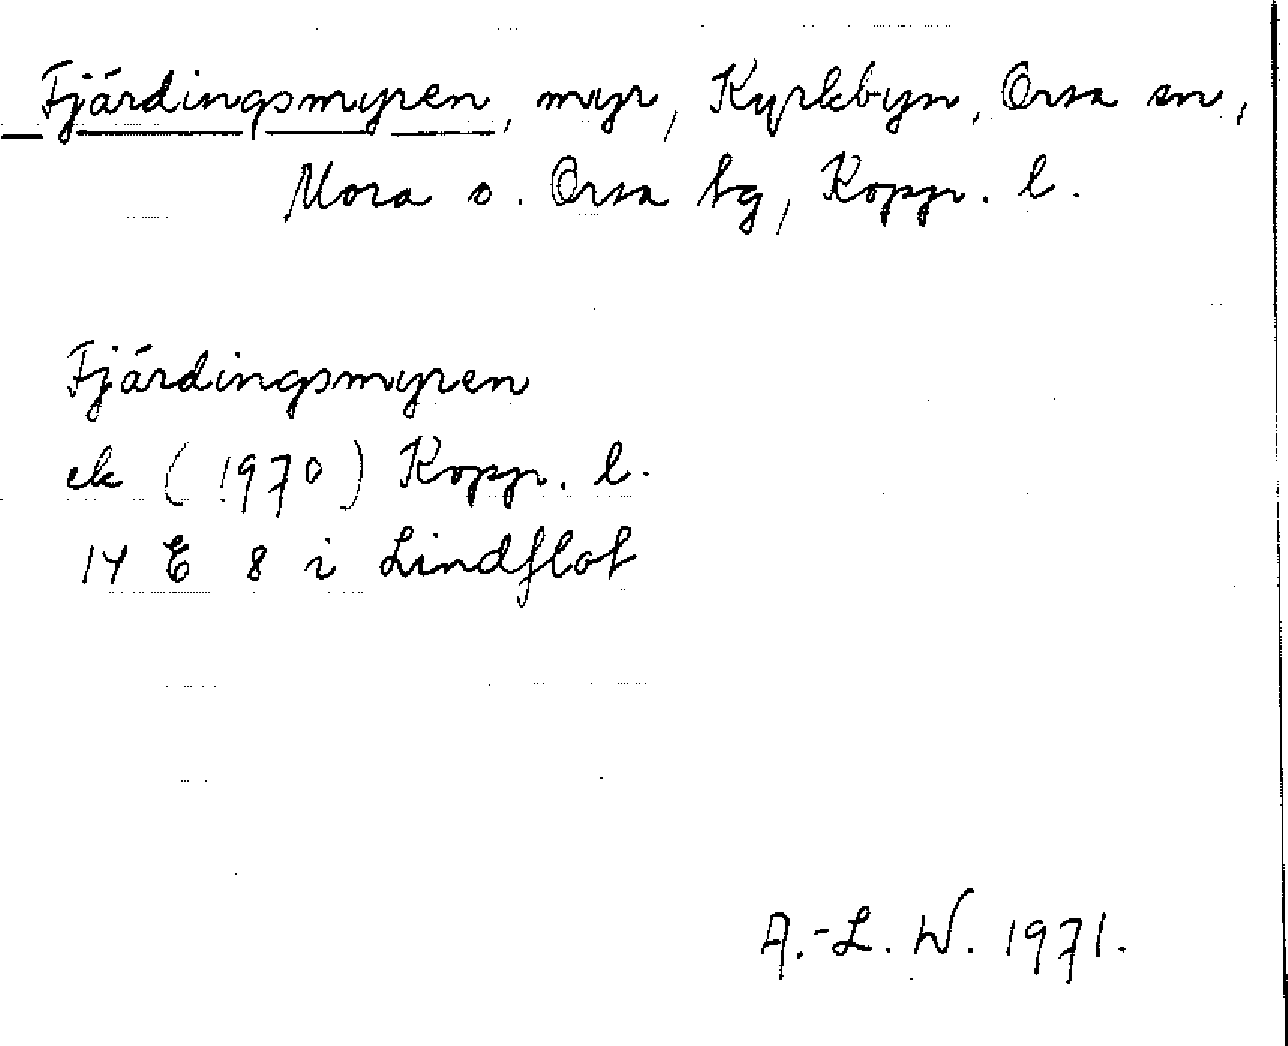 Fjärdingsmyren, myr, Kyrkbyn, Orsa sn,
Mora o. Orsa tg, Kopp. l.
Fjärdingsmyren
ek (1970) Kopp. l.
14 E 8 i Lindflot
A.-L. W. 1971.